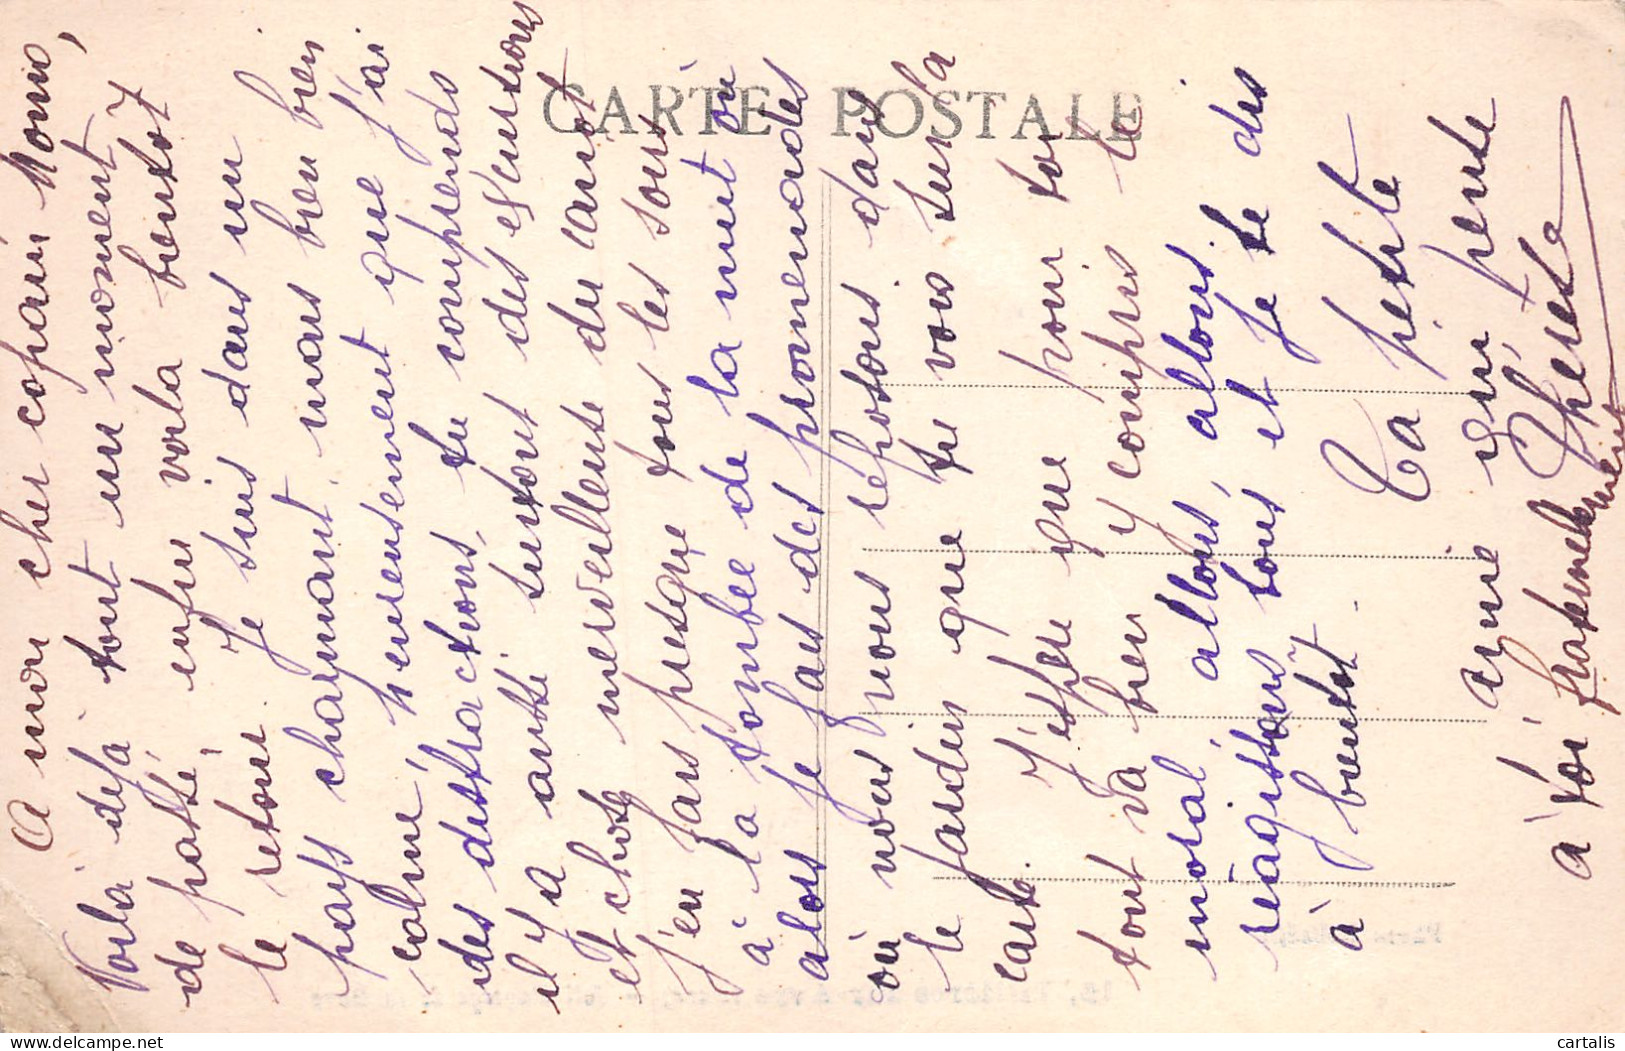 CARTE POSTALE
A mon cher copain Nono,
Voilà déjà tout un moment
de passé, enfin voila bientot
le retour. Je suis dans un
pays charmant, mais bien bien
calme, heureusement que j'ai
des distractions, tu comprends
il y a aussi surtout des excursions
et chose merveilleuse du canot
j'en fais presque tous les soirs
à la tombée de la nuit où
alors je fais des promenades
où nous nous reposons dans
le jardin que tu vois sur la
carte. J'espère que pour toi
tout va bien y compris le
moral, allons, allons,
réagissons tous et je te dis
à bientot.
Ta petite
amie qui pense
à toi fraternellement
Thérèse
delcampe.net
cartalis